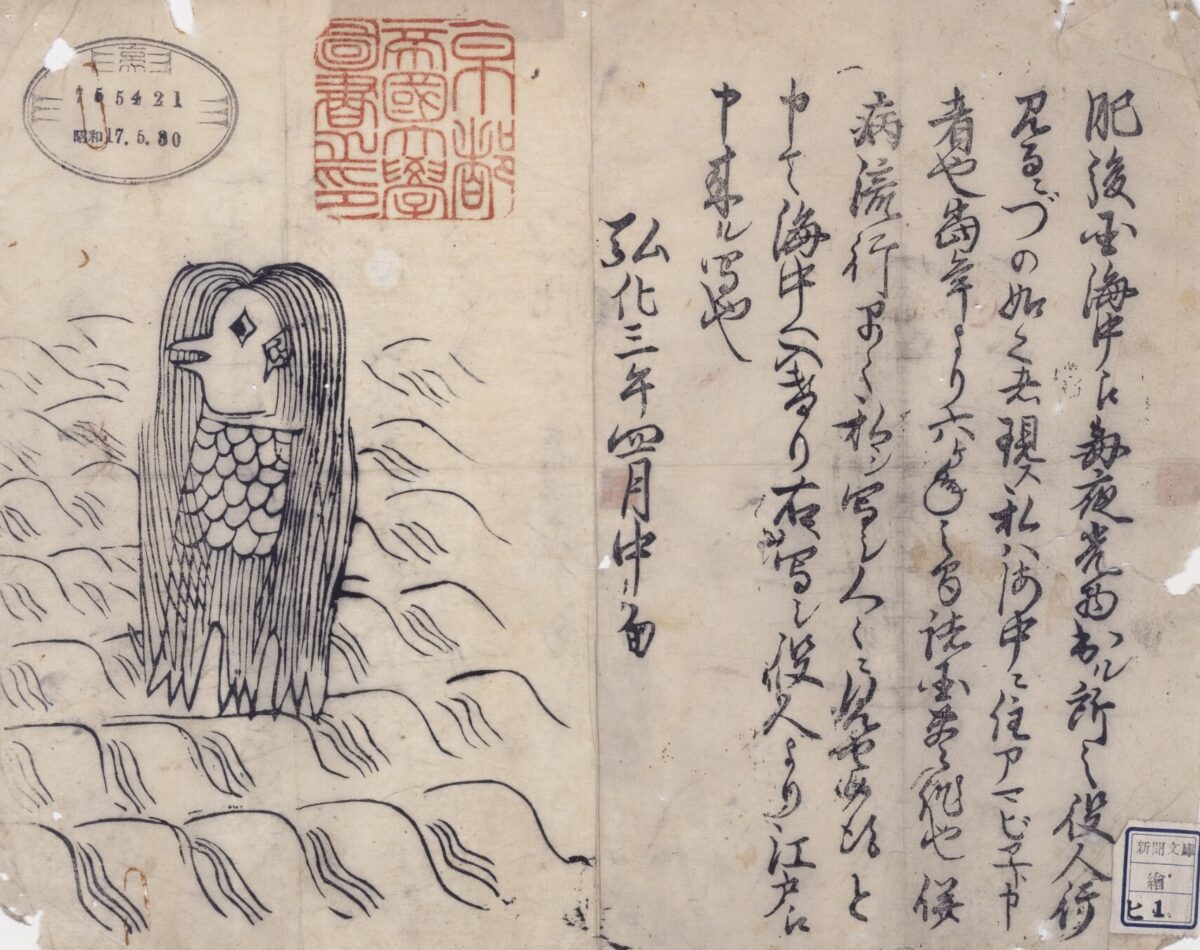 肥後国海中江毎夜光物出ル所之役人行
見るニづの如く之者現ス私ハ海中ニ住アマビヱト申
者也當年より六ヶ年之間諸国豊作也併
病流行早々私ヲ写シ人々ニ見せ候得と
申て海中へ入けり右写シ役人より江戸江
申来ル写也
弘化三年四月中旬
京都
帝國大學
圖書之印
755421
昭和17.5.30
新聞文庫
繪
ヒ1